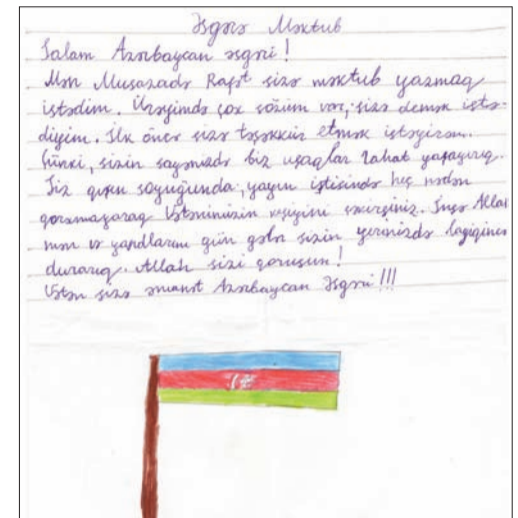 Əsgərə Məktub
Salam Azərbaycan əsgəri!
Mən Musazadə Rafət sizə məktub yazmaq
istədim. Ürəyimdə çox sözüm var, sizə demək istə-
diyim. İlk öncə sizə təşəkkür etmək istəyirəm.
Çünki, sizin sayənizdə biz uşaqlar rahat yaşayırıq.
Siz qışın soyuğunda, yayın istisində heç nədən
qorxmayaraq Vətənimizin keşiyini çəkirsiniz. İnşə Allah
mən və yaşıdlarım gün gələr sizin yerinizdə layiqincə
durarıq. Allah sizi qorusun!
Vətən sizə əmanət Azərbaycan Əsgəri!!!